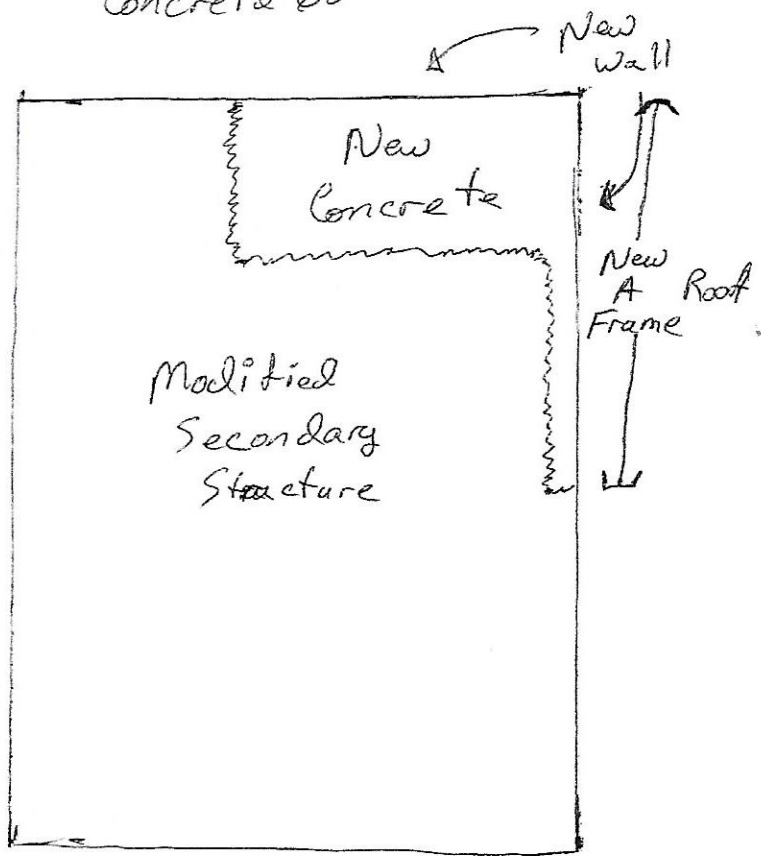 Concrete
New
Wall
New
Concrete
New
A Roof
Frame
Modified
Secondary
Structure